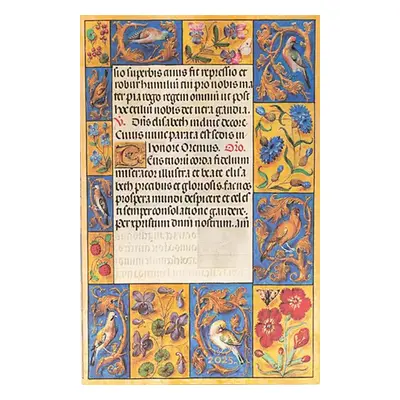 sio superbis cuius fit repressio et
robur humilium tu pro nobis ma
ter pia rogo regem omnium ut post
hoc exilium nobis det vera gaudia.
V. Diffusa
Cuius nunc parata est
honore Oremus. Oro.
corda fidelium
miserator illustra et beate elisa
beth precibus et gloriosis. fac nos
prospera mundi despicere et celes
ti semper consolatione gaudere.
Per xpistum dnum nostrum. Am
2025